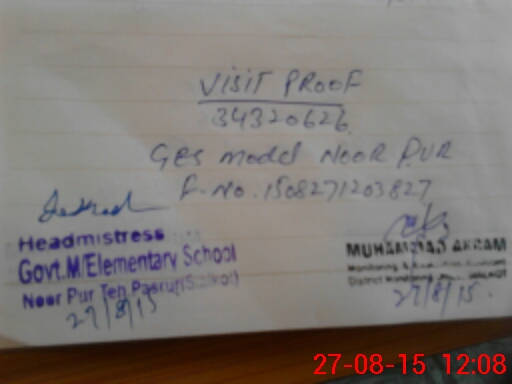 VISIT PROOF
34320626
GES model NOOR PUR
F.No. 1508271203827
Headmistress
Govt.M/Elementary School
Noor Pur Teh Pasrur(Sialkot)
27/8/15
MUHAMMAD AKRAM
Monitoring &
District Monitoring
27/8/15.
27-08-15 12:08